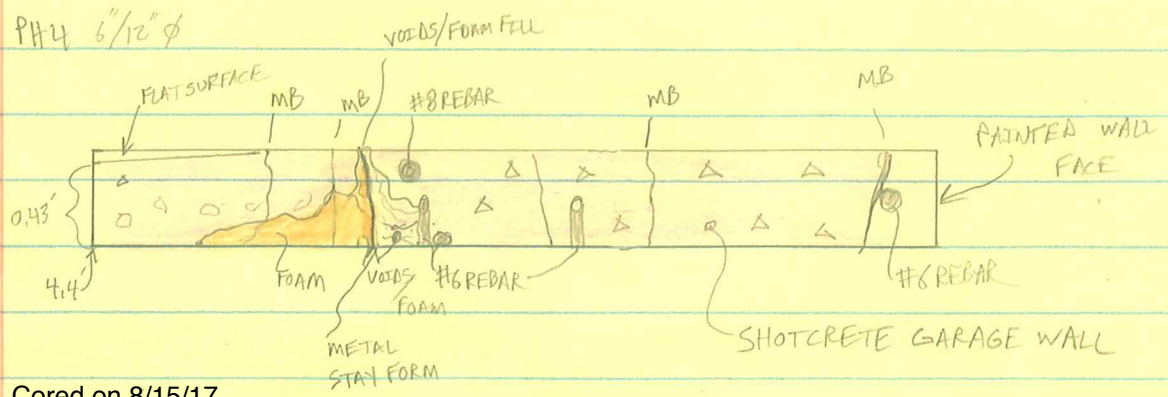 PH4 6"/12" ⌀
VOIDS/FOAM FILL
FLAT SURFACE
MB
MB
#8 REBAR
MB
MB
PAINTED WALL
FACE
0.43'
4.4'
FOAM
VOIDS
FOAM
#6 REBAR
#6 REBAR
METAL
STAY FORM
SHOTCRETE GARAGE WALL
Cored on 8/15/17